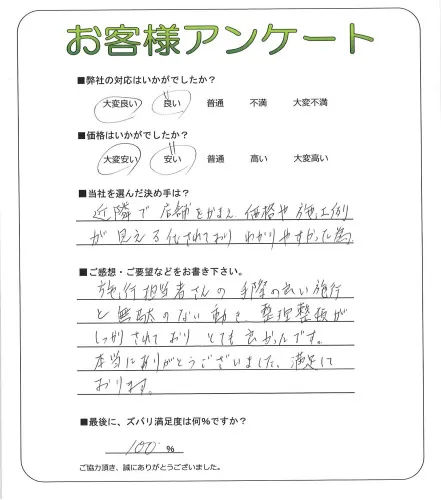 お客様アンケート
■弊社の対応はいかがでしたか？
大変良い 良い 普通 不満 大変不満
■価格はいかがでしたか？
大変安い 安い 普通 高い 大変高い
■当社を選んだ決め手は？
近隣で店舗をかまえ 価格や施工例
が見える化されており わかりやすかった為
■ご感想・ご要望などをお書き下さい。
施行担当者さんの手際の良い施行
と無駄のない動き、整理整頓が
しっかりされており とても良かったです。
本当にありがとうございました。満足して
おります。
■最後に、ズバリ満足度は何%ですか？
100 %
ご協力頂き、誠にありがとうございました。